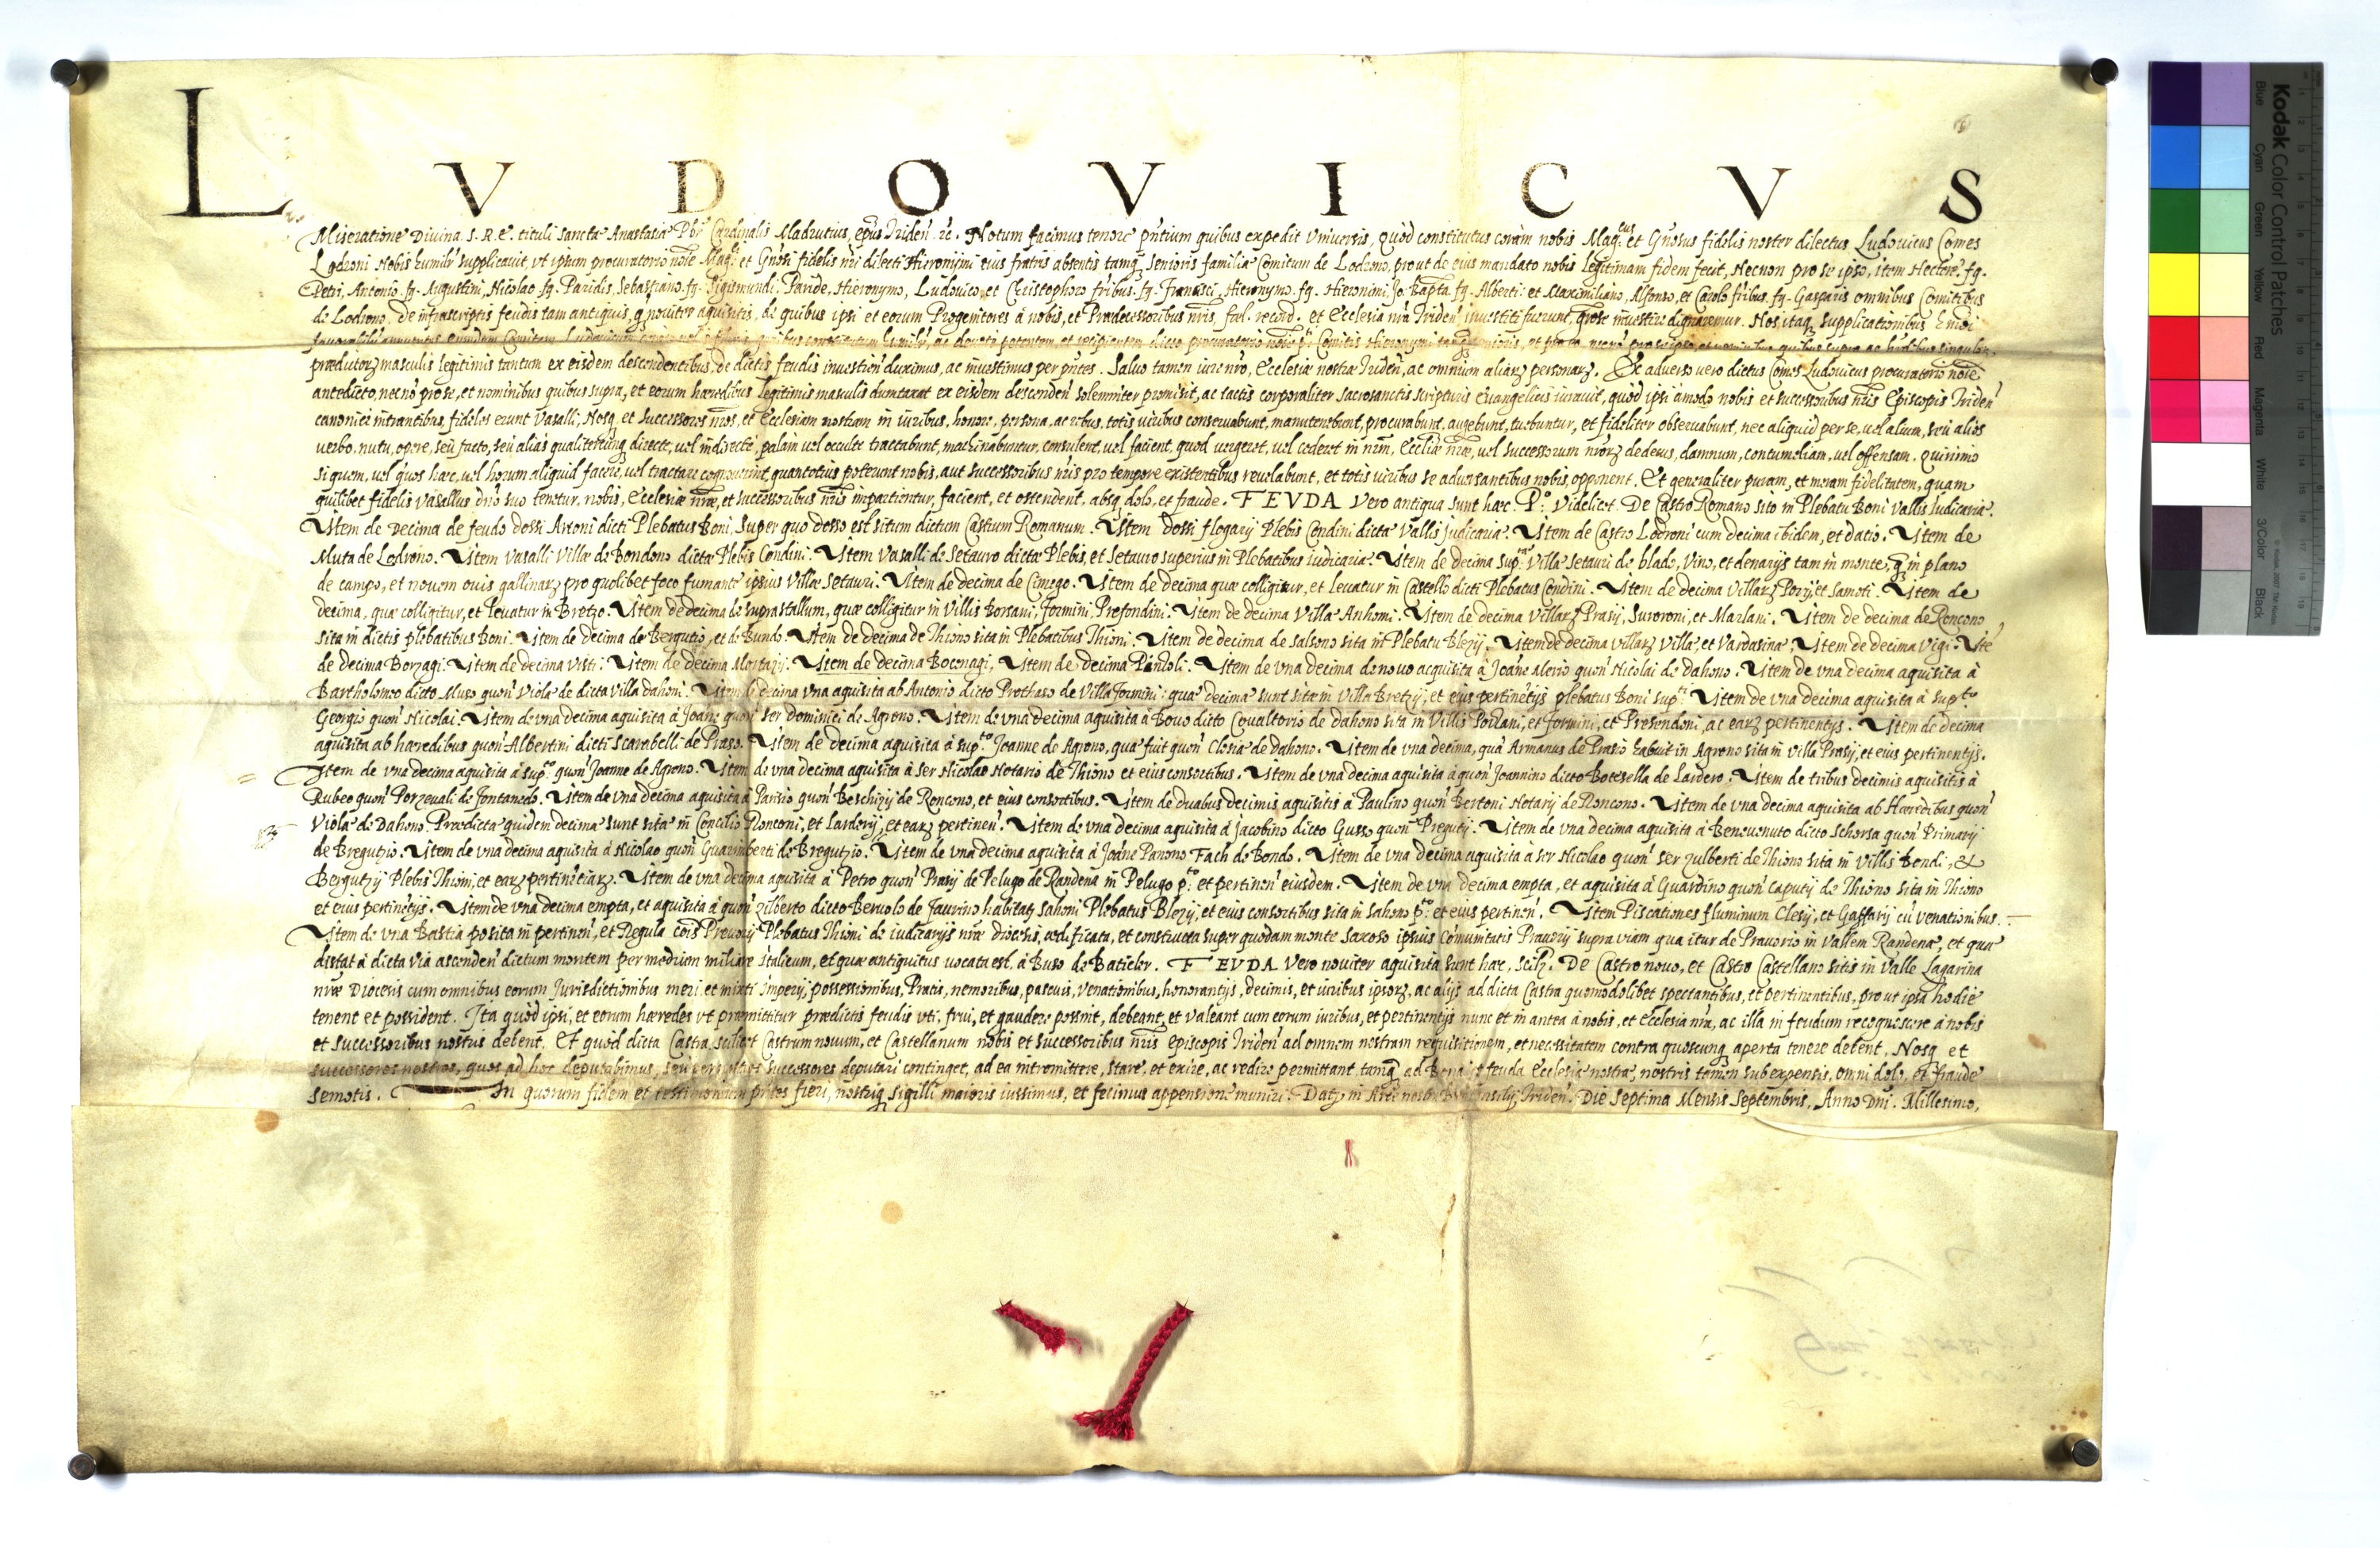 LVDOVICVS
Miseratione Divina S. R. E. tituli Sanctæ Anastasiæ Pbr Cardinalis Madrutius, epũs Triden̄ rc. Notum facimus tenore pñtium quibus expedit vniversis, Quòd constitutus coràm nobis Mag.cus et Gñosus fidelis noster dilectus Ludovicus Comes
Lodroni Nobis humiliʳ supplicavit, vt ipsum procuratorio noīe Mag.ci et Gñosi fidelis nr̄i dilecti Hieronymi eius fratris absentis tamq̃ Senioris familiæ Comitum de Lodrono, prout de eius mandato nobis legitimam fidem fecit, Necnon pro se ipso, item Hectore fq.
Petri, Antonio fq. Augustini, Nicolao fq. Paridis, Sebastiano fq. Sigismundi: Paride, Hieronymo, Ludovico, et Christophoro fribus. fq. Francisci, Hieronymo. fq. Hieronimi, Jo: Bapta fq. Alberti: et Maximiliano, Alfonso, et Carolo fribus. fq. Gasparis omnibus Comitibus
de Lodrono, de infrascriptis feudis tam antiquis, q̃ noviter aquisitis, de quibus ipsi et eorum Progenitores à nobis, et Prædecessoribus nr̄is, fæl. record. et Ecclesia nr̄a Triden̄ investiti fuerunt, investire dignaremur. Nos itaq supplicationibus
prædictorȝ masculis legitimis tantum ex eisdem descendentibus de dictis feudis investien̄ duximus, ac investimus per pñtes. Salvo tamen iure nr̄o, Ecclesiæ nostræ Triden̄, ac omnium aliarȝ personarȝ. Ex adverso vero dictus Comes Ludovicus procuratorio noīe
antedicto, necnō pro se, et nominibus quibus supra, et eorum hæredibus legitimis masculis dumtaxat ex eisdem descenden̄ solemniter promisit, ac tactis corporaliter sacrosanctis scripturis Evangelicis iuravit, quòd ipsi amodo nobis et successoribus nr̄is Episcopis Triden̄
canonicè intrantibus, fideles erunt Vasalli, Nosq et Successores nr̄os, et Ecclesiam nostram in iuribus, honore, persona, ac rebus, totis viribus conservabunt, manutenebunt, procurabunt, augebunt, tuebuntur, et fideliter observabunt, nec aliquid per se, vel alium, seu alios
verbo, nutu, opere, seu facto, seu aliàs qualitercunq directe, vel indirecte, palàm vel occulte tractabunt, machinabuntur, consulent, vel facient, quod vergeret, vel cederet in nr̄m, Ecclīæ nr̄æ, vel successorum nr̄orȝ dedecus, damnum, contumeliam, vel offensam. Quinimo
si quem, vel quos hæc, vel horum aliquid facere, vel tractare cognoverint, quantotius poterunt nobis, aut successoribus nr̄is pro tempore existentibus revelabunt, et totis viribus se adversantibus nobis, opponent. Et generaliter puram, et meram fidelitatem, quam
quilibet fidelis Vasallus dño suo tenetur, nobis, Ecclesiæ nr̄æ, et successoribus nr̄is impartientur, facient, et ostendent, absq dolo, et fraude. FEVDA Vero antiqua sunt hæc. P.o Videlicet. De Castro Romano sito in Plebatu Boni Vallis Iudicariæ.
Item de Decima de feudo Dossi Arconi dicti Plebatus Boni, super quo dosso est situm dictum Castrum Romanum. Item Dossi flogarij Plebis Condini dictæ Vallis Judicariæ. Item de Castro Lodroni cum decima ibidem, et datio. Item de
Muta de Lodrono. Item Vasalli Villæ de Bondono dictæ Plebis Condini. Item Vasalli de Setauro dictæ Plebis, et Setauro superius in Plebatibus iudicariæ. Item de decima sup.tæ Villæ Setauri de blado, Vino, et denarys tam in monte, q̃ in plano
de campo, et novem ovis gallinarȝ pro quolibet foco fumante ipsius Villæ Setauri. Item de decima de Cimego. Item de decima quæ colligitur, et levatur in Castello dicti Plebatus Condini. Item de decima Villarȝ Porij, et Samoti. Item de
decima, quæ colligitur, et levatur in Bretzo. Item de decima de supra stallum, quæ colligitur in Villis Borsani, Formini, Prefondini. Item de decima Villæ Anhomi. Item de decima Villarȝ Prasij, Suroroni, et Marlani. Item de decima de Roncono
sita in dictis plebatibus Boni. Item de decima de Bergutio, et de Bundo. Item de decima de Thiono sita in Plebatibus Thioni. Item de decima de Salsono sita in Plebatu Blezij. Item de decima Villarȝ Villæ, et Vardasinæ. Item de decima Vigi. Itē
de decima Borzagi. Item de decima Visti. Item de decima Mortazij. Item de decima Bocenagi. Item de decima Pinzoli. Item de vna decima de novo acquisita à Joāne Merio quon̄ Nicolai de Dahono. Item de vna decima aquisita à
Bartholomeo dicto Muso quon̄ Violæ de dicta Villa Dahoni. Item de decima vna aquisita ab Antonio dicto Prothaso de Villa Formini: quæ decimæ sunt sitæ in Villa Bretzij, et eius pertinētijs plebatus Boni sup.ti Item de vna decima aquisita à sup.to
Georgio quon̄ Nicolai. Item de vna decima aquisita à Joāne quon̄ ser Dominici de Agrono. Item de vna decima aquisita à Bovo dicto Covaltorio de Dahono sita in Villis Porzani, et Formini, et Presendoni, ac earȝ pertinentijs. Item de decima
aquisita ab hæredibus quon̄ Albertini dicti Scarabelli de Praso. Item de decima aquisita à sup.to Joanne de Agrono, quæ fuit quon̄ Closiæ de Dahono. Item de vna decima, quā Armanus de Prasio habuit in Agrono sita in Villa Prasij, et eius pertinentijs.
Item de vna decima aquisita à sup.to quon̄ Joanne de Agrono. Item de vna decima aquisita à ser Nicolao Notario de Thiono et eius consortibus. Item de vna decima aquisita à quon̄ Joannino dicto Botesella de Lardero. Item de tribus decimis aquisitis à
Rubeo quon̄ Porzevali de Fontanedo. Item de vna decima aquisita à Parisio quon̄ Beschizij de Roncono, et eius consortibus. Item de duabus decimis aquisitis à Paulino quon̄ Bertoni Notarij de Roncono. Item de vna decima aquisita ab Hæredibus quon̄
Violæ de Dahono. Prædictæ quidem decimæ sunt sitæ in Concilio Ronconi, et Larderij, et earȝ pertinen̄. Item de vna decima aquisita à Jacobino dicto Gusso quon̄ Pregutij. Item de vna decima aquisita à Benevenuto dicto Schorsa quon̄ Primarij
de Bregutio. Item de vna decima aquisita à Nicolao quon̄ Guarimberti de Bregutzio. Item de vna decima aquisita à Joāne Panono Fach de Bondo. Item de vna decima aquisita à ser Nicolao quon̄ ser Zulberti de Thiono sita in Villis Bondi, et
Bergutzij Plebis Thioni, et earȝ pertinētiarȝ. Item de vna decima aquisita à Petro quon̄ Prasij de Pelugo de Randena in Pelugo p.to et pertinen̄ eiusdem. Item de vna decima empta, et aquisita à Guardino quon̄ Caputij de Thiono sita in Thiono
et eius pertinētijs. Item de vna decima empta, et aquisita à quon̄ Zilberto dicto Bervolo de Favrino habitatȝ Sahoni Plebatus Blezij, et eius consortibus sita in Sahono p.to et eius pertinen̄. Item Piscationes fluminum Clesij, et Gaffarij cū venationibus.
Item de vna Bastia posita in pertinen̄, et Regula cōis Prevorij Plebatus Thioni de iudicarijs nr̄æ Diocesis, ædificata, et constructa super quodam monte saxoso ipsius Comunitatis Pravorij supra viam qua itur de Pravorio in Vallem Randenæ, et quæ
distat à dicta via ascenden̄ dictum montem per medium miliare Italicum, et quæ antiquitus vocata est, à Buso de Baticler. FEVDA Vero noviter aquisita sunt hæc, scilȝ. De Castro novo, et Castro Castellano sitis in Valle Lagarina
nr̄æ Diocesis cum omnibus eorum Jurisdictionibus meri et mixti Imperij, possessionibus, Pratis, nemoribus, pascuis, venationibus, honorantijs, decimis, et iuribus ipsorȝ, ac alijs ad dicta Castra quomodolibet spectantibus, et pertinentibus, prout ipsa hodie
tenent et possident. Ita quòd ipsi, et eorum hæredes vt præmittitur prædictis feudis vti, frui, et gaudere possint, debeant, et valeant cum eorum iuribus, et pertinentijs nunc et in antea à nobis, et Ecclesia nr̄a, ac illa in feudum recognoscere à nobis
et successoribus nostris debent. Et quòd dicta Castra, scilicet Castrum novum, et Castellanum nobis et successoribus nr̄is Episcopis Triden̄ ad omnem nostram requisitionem, et necessitatem contra quoscunq aperta tenere debent, Nosq et
successores nostros, quos ad hoc deputabimus, seu per ipsos successores deputari continget, ad ea intromittere, stare, et exire, ac redire permittant tamq̃ ad Bona et feuda Ecclesiæ nostræ, nostris tamen sub expensis, omni dolo, et fraude
semotis. In quorum fidem et testimonium pñtes fieri, nostriq sigilli maioris iussimus, et fecimus appensione muniri. Datȝ in Triden̄. Die Septima Mensis Septembris. Anno Dñi. Millesimo,
Kodak Color Control Patches
Blue Cyan Green Yellow Red Magenta White 3/Color Black
© Kodak, 2007 TM: Kodak